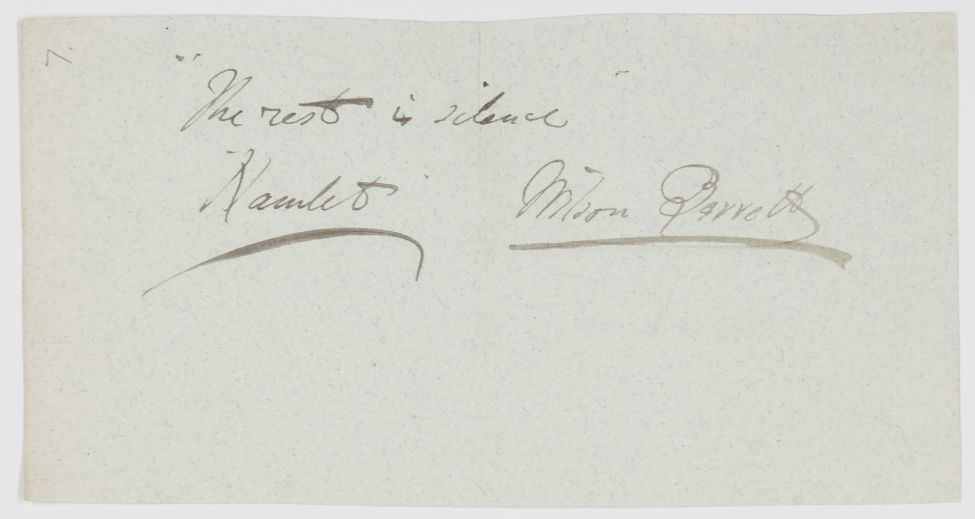 7.
"The rest is silence"
"Hamlet" Wilson Barrett